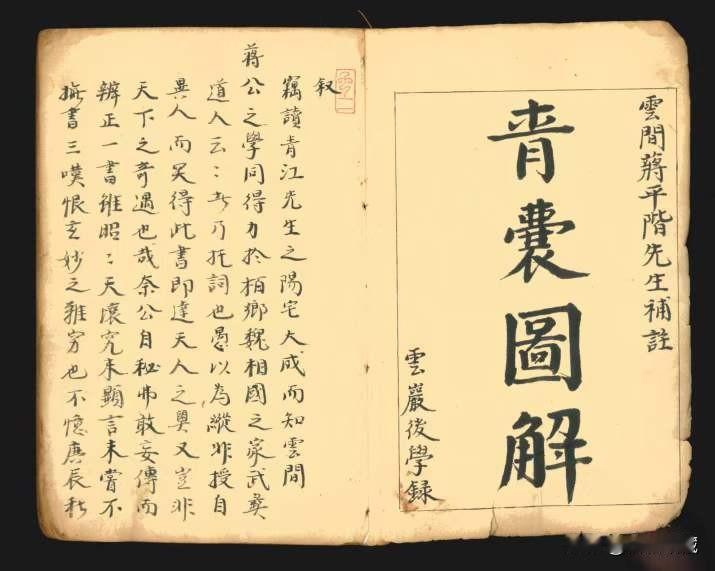 雲間蔣平階先生補註
青囊圖解
雲巖後學録
叙
竊讀青江先生之陽宅大成而知雲間
蔣公之學同得力於柏鄉魏相國之家武夷
道人云〻者乃托詞也愚以為縱非授自
異人而哭得此書即達天人之奥又豈非
天下之奇遇也哉奈公自秘弗敢妄傳而
辨正一書雖昭〻天壤究未顯言未嘗不
撫書三嘆恨玄妙之難窮也不憶庚辰秋